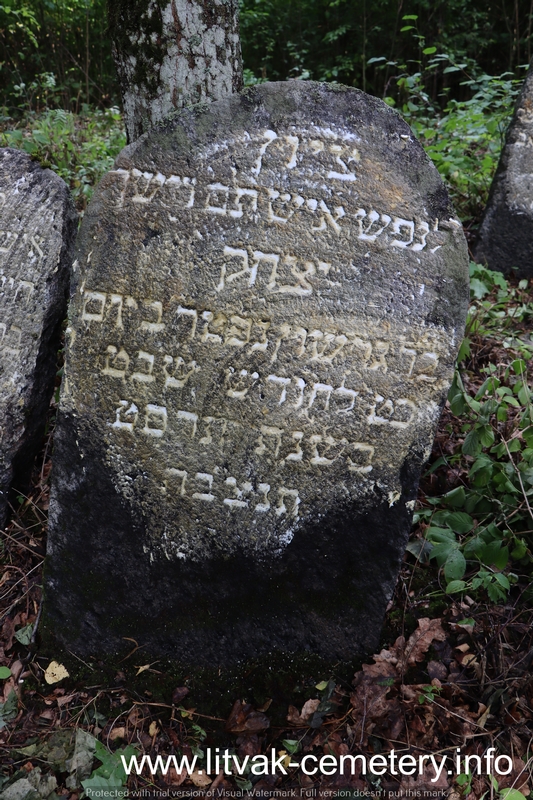 ציון
לנפש איש תם וישר
יצחק
בר גרשון נפטר ביום
כט לחודש שבט
בשנת תרסט
תנצבה
www.litvak-cemetery.info
Protected with trial version of Visual Watermark. Full version doesn't put this mark.